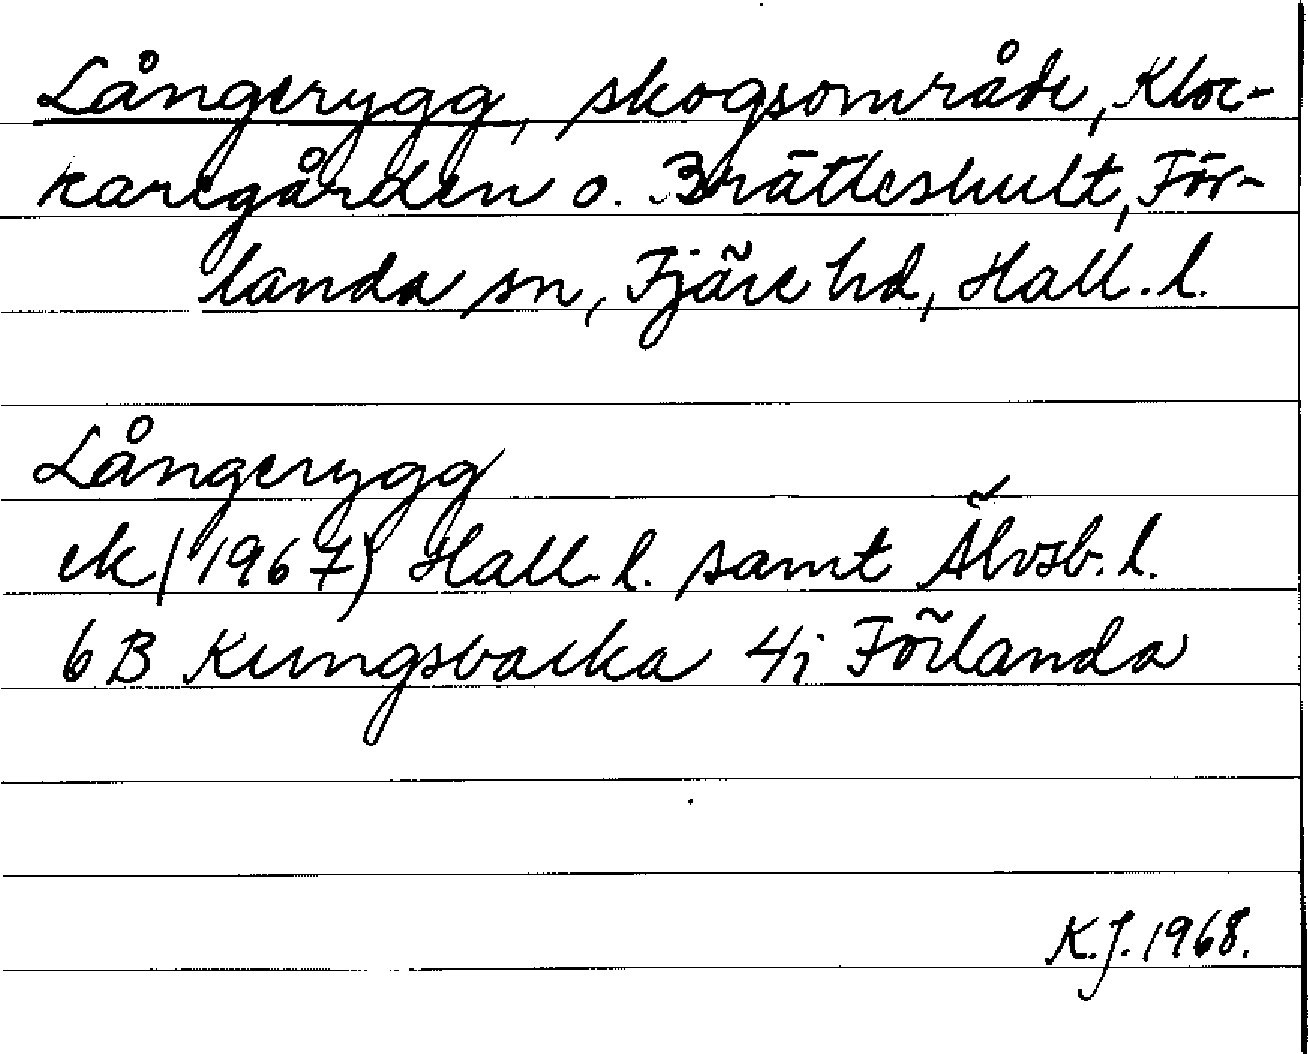 Långerygg, skogsområde, Kloc-
karegården o. Brättleshult, För-
landa sn, Fjäre hd, Hall. l.
Långerygg
ek (1967) Hall. l. samt Älvsb. l.
6B Kungsbacka 4i Förlanda
K.J. 1968.